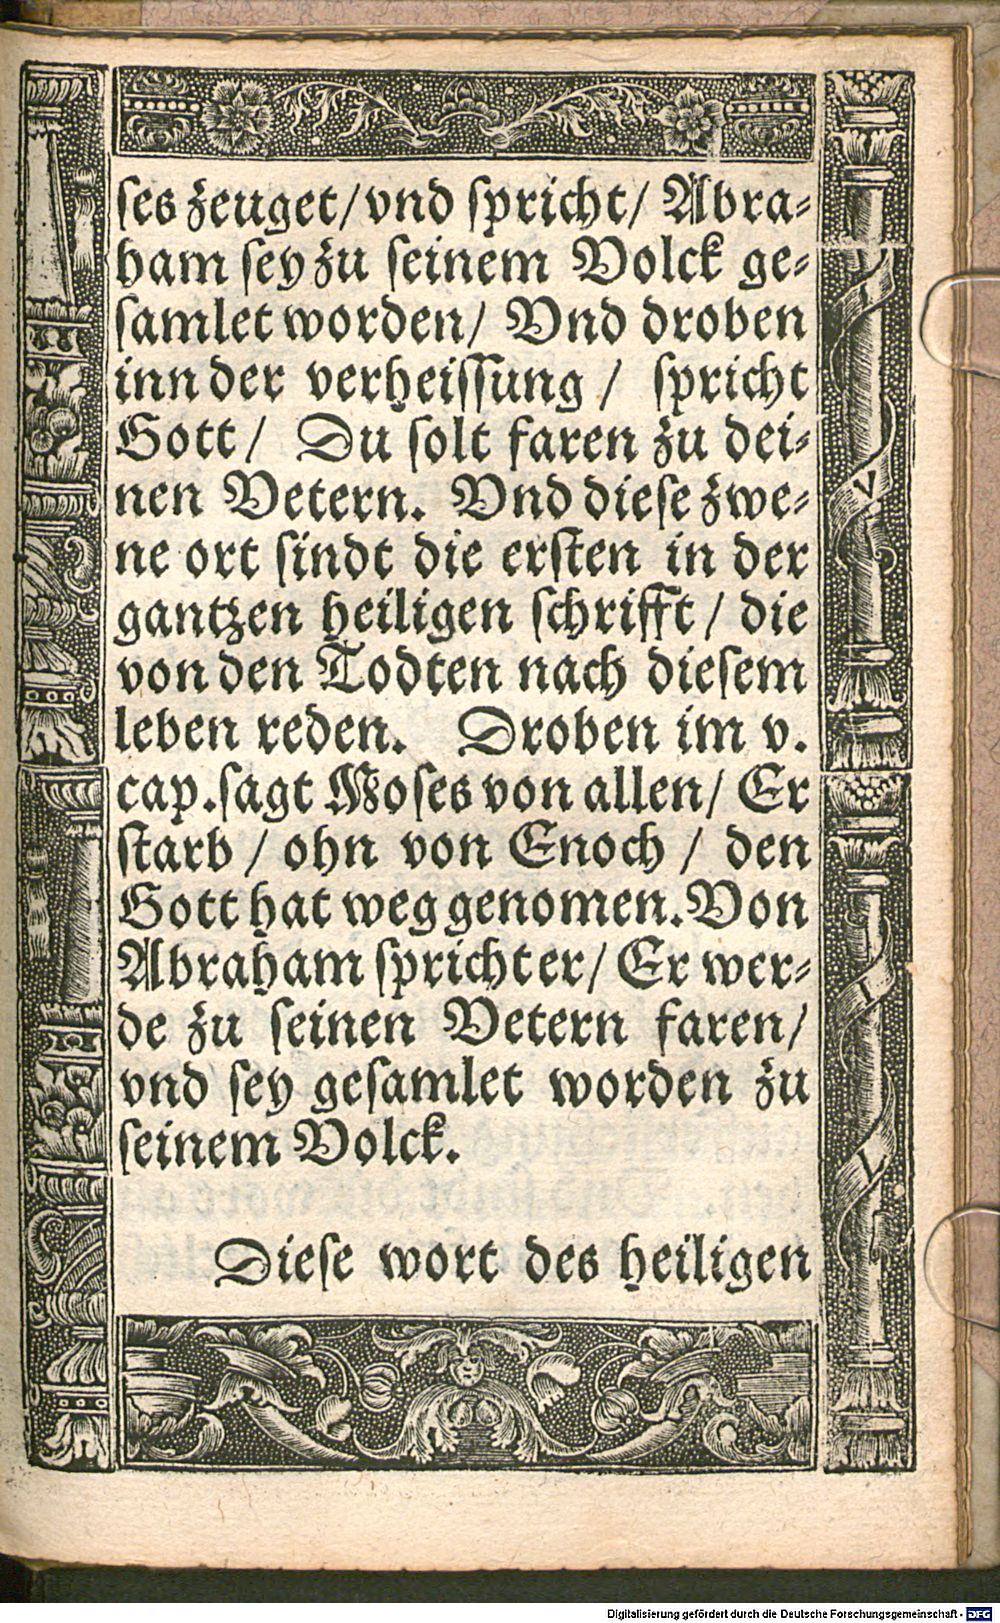 ses zeuget/ vnd spricht/ Abra-
ham sey zu seinem Volck ge-
samlet worden/ Vnd droben
inn der verheissung / spricht
Gott/ Du solt faren zu dei-
nen Vetern. Vnd diese zwe-
ne ort sindt die ersten in der
gantzen heiligen schrifft / die
von den Todten nach diesem
leben reden. Droben im v.
cap. sagt Moses von allen/ Er
starb / ohn von Enoch / den
Gott hat weg genomen. Von
Abraham spricht er/ Er wer-
de zu seinen Vetern faren/
vnd sey gesamlet worden zu
seinem Volck.
Diese wort des heiligen
I
V
I
L
Digitalisierung gefördert durch die Deutsche Forschungsgemeinschaft - DFG